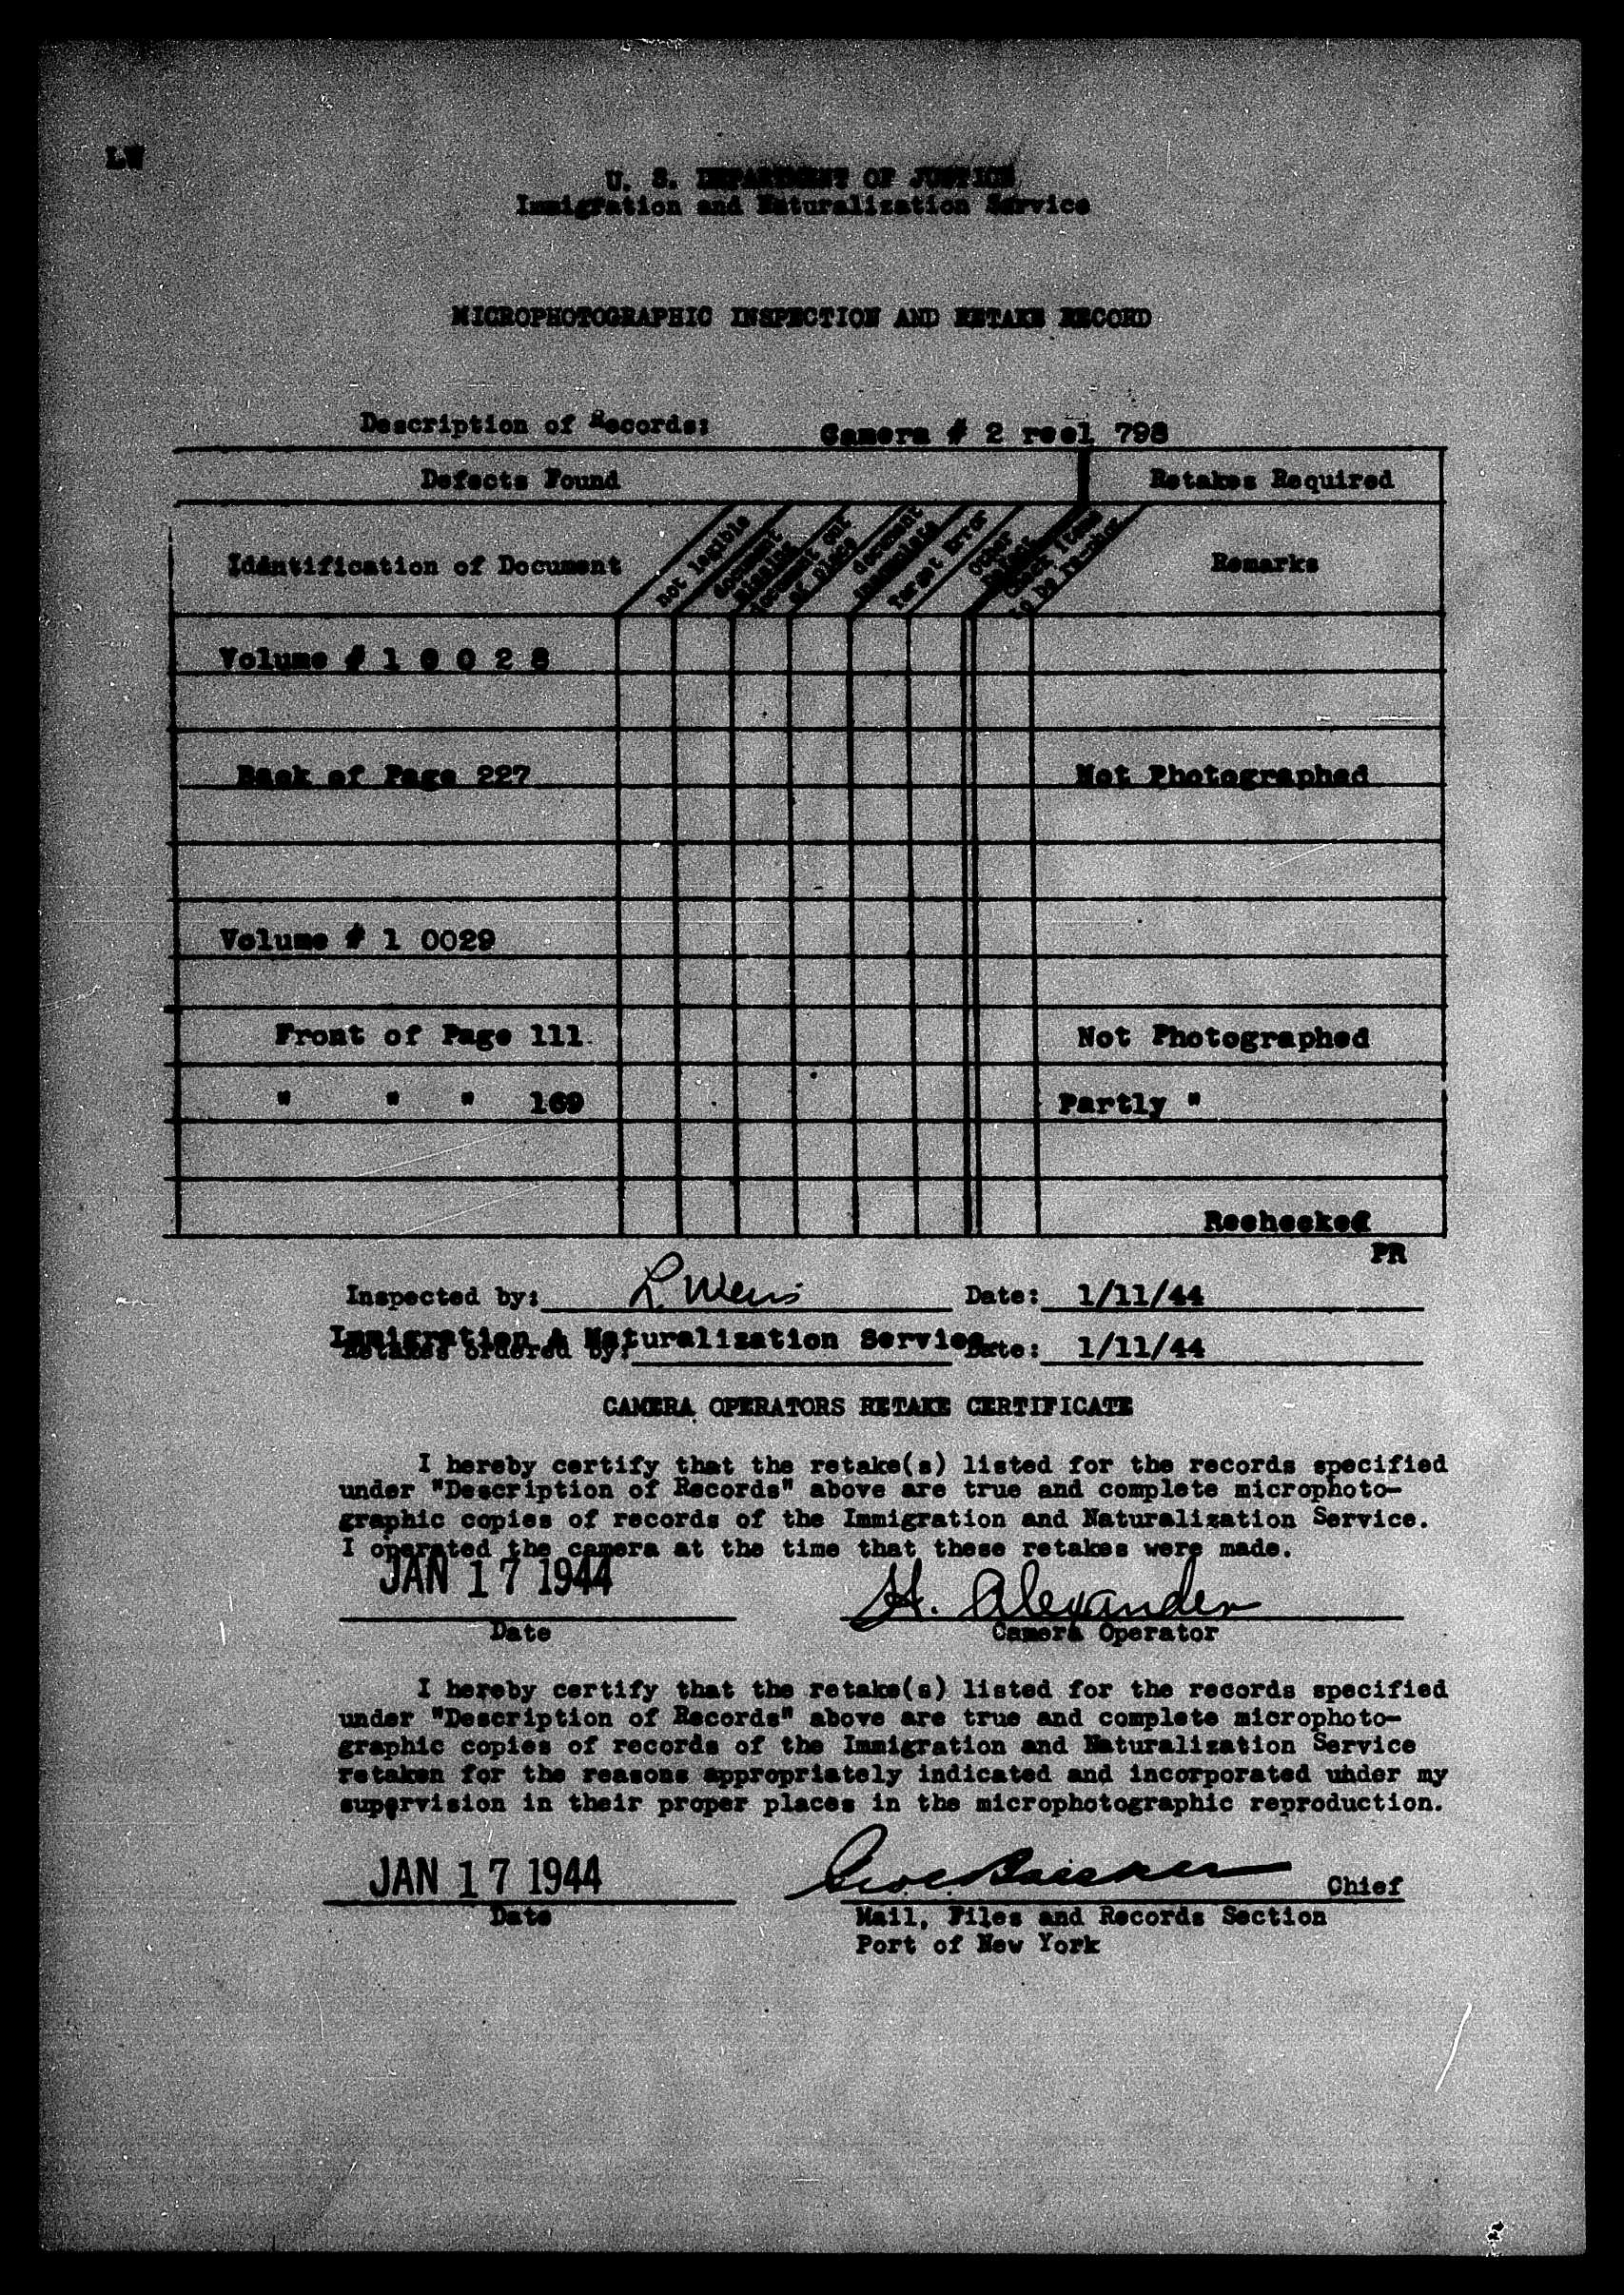 LW
U. S. DEPARTMENT OF JUSTICE
Immigration and Naturalization Service
MICROPHOTOGRAPHIC INSPECTION AND RETAKE RECORD
Description of Records: Camera # 2 reel 798
Defects Found Retakes Required
Identification of Document
not legible
document missing
document out of place
document incomplete
Target Error
other
check items to be
Remarks
Volume # 1 0 0 2 8
Back of Page 227 Not Photographed
Volume # 1 0029
Front of Page 111 Not Photographed
" " " 169 Partly "
Rechecked
PR
Inspected by: L. Weis Date: 1/11/44
Immigration & Naturalization Service
Retakes ordered by: Date: 1/11/44
CAMERA OPERATORS RETAKE CERTIFICATE
I hereby certify that the retake(s) listed for the records specified
under "Description of Records" above are true and complete microphoto-
graphic copies of records of the Immigration and Naturalization Service.
I operated the camera at the time that these retakes were made.
JAN 17 1944 H. Alexander
Date Camera Operator
I hereby certify that the retake(s) listed for the records specified
under "Description of Records" above are true and complete microphoto-
graphic copies of records of the Immigration and Naturalization Service
retaken for the reasons appropriately indicated and incorporated uhder my
supervision in their proper places in the microphotographic reproduction.
JAN 17 1944 Chief
Date Mail, Files and Records Section
Port of New York